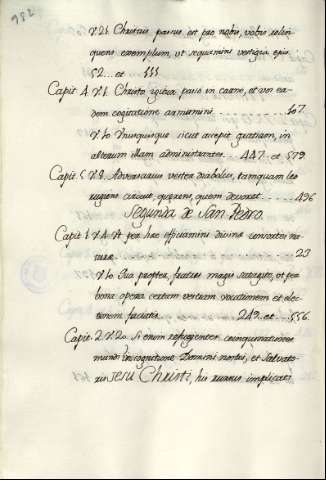 952
V. 21. Christus passus est pro nobis, vobis relin
quens exemplum, ut sequamini vestigia ejus
52.. et 111
Capit. 4. V. 1. Christo igitur passo in carne, et vos ea
dem cogitatione armamini. . . . . . . . . 107
V. 10. Unusquisque sicut accepit gratiam, in
alterutrum illam administrantes. . . 447.. et 579
Capit. 5. V. 8. Adversarius vester diabolus, tamquam leo
rugiens circuit, quærens, quem devoret. . . . . 496
Segunda de San Pedro.
Capit. 1. V. 4. Ut per hæc efficiamini divinæ consortes na-
turæ. . . . . . . . . . . . . . . 23
V. 10. Qua propter, fratres magis satagite, ut per
bona opera certam vestram vocationem et elec
tionem faciatis. . . . . . . 249.. et . . 556.
Capit. 2. V. 20. Si enim refugientes coinquinationes
mundi in cognitione Domini nostri, et Salvato-
ris Jesu Christi, his rursus implicati